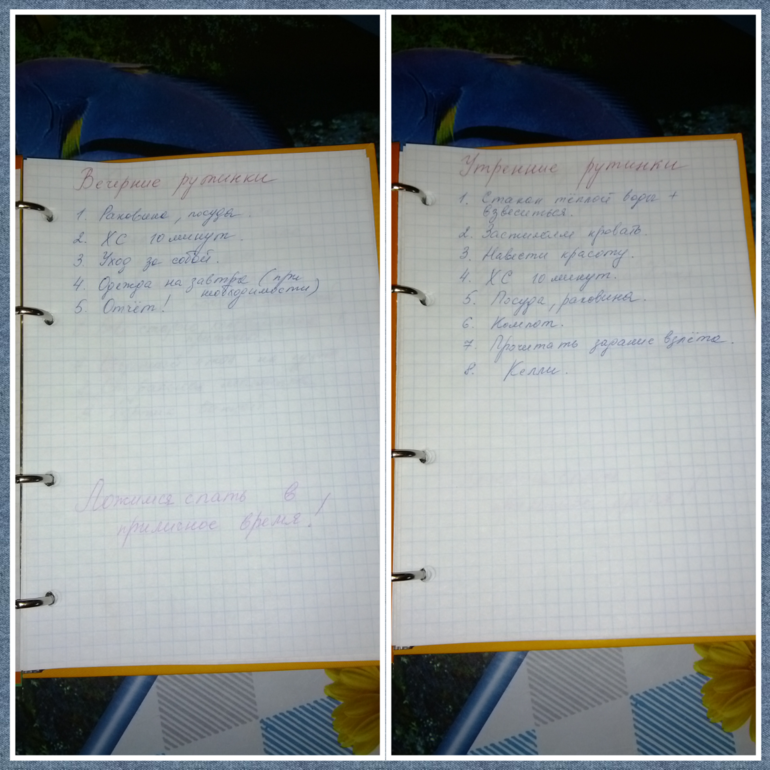 Вечерние рутинки
1. Раковина, посуда
2. ХС 10 минут.
3. Уход за собой.
4. Одежда на завтра (при
необходимости)
5. Отчёт!
Ложимся спать в
приличное время!
Утренние рутинки
1. Стакан теплой воды +
взвеситься.
2. Застилаем кровать.
3. Навести красоту.
4. ХС 10 минут.
5. Посуда, раковина.
6. Компот.
7. Прочитать задание взлёта.
8. Келли.